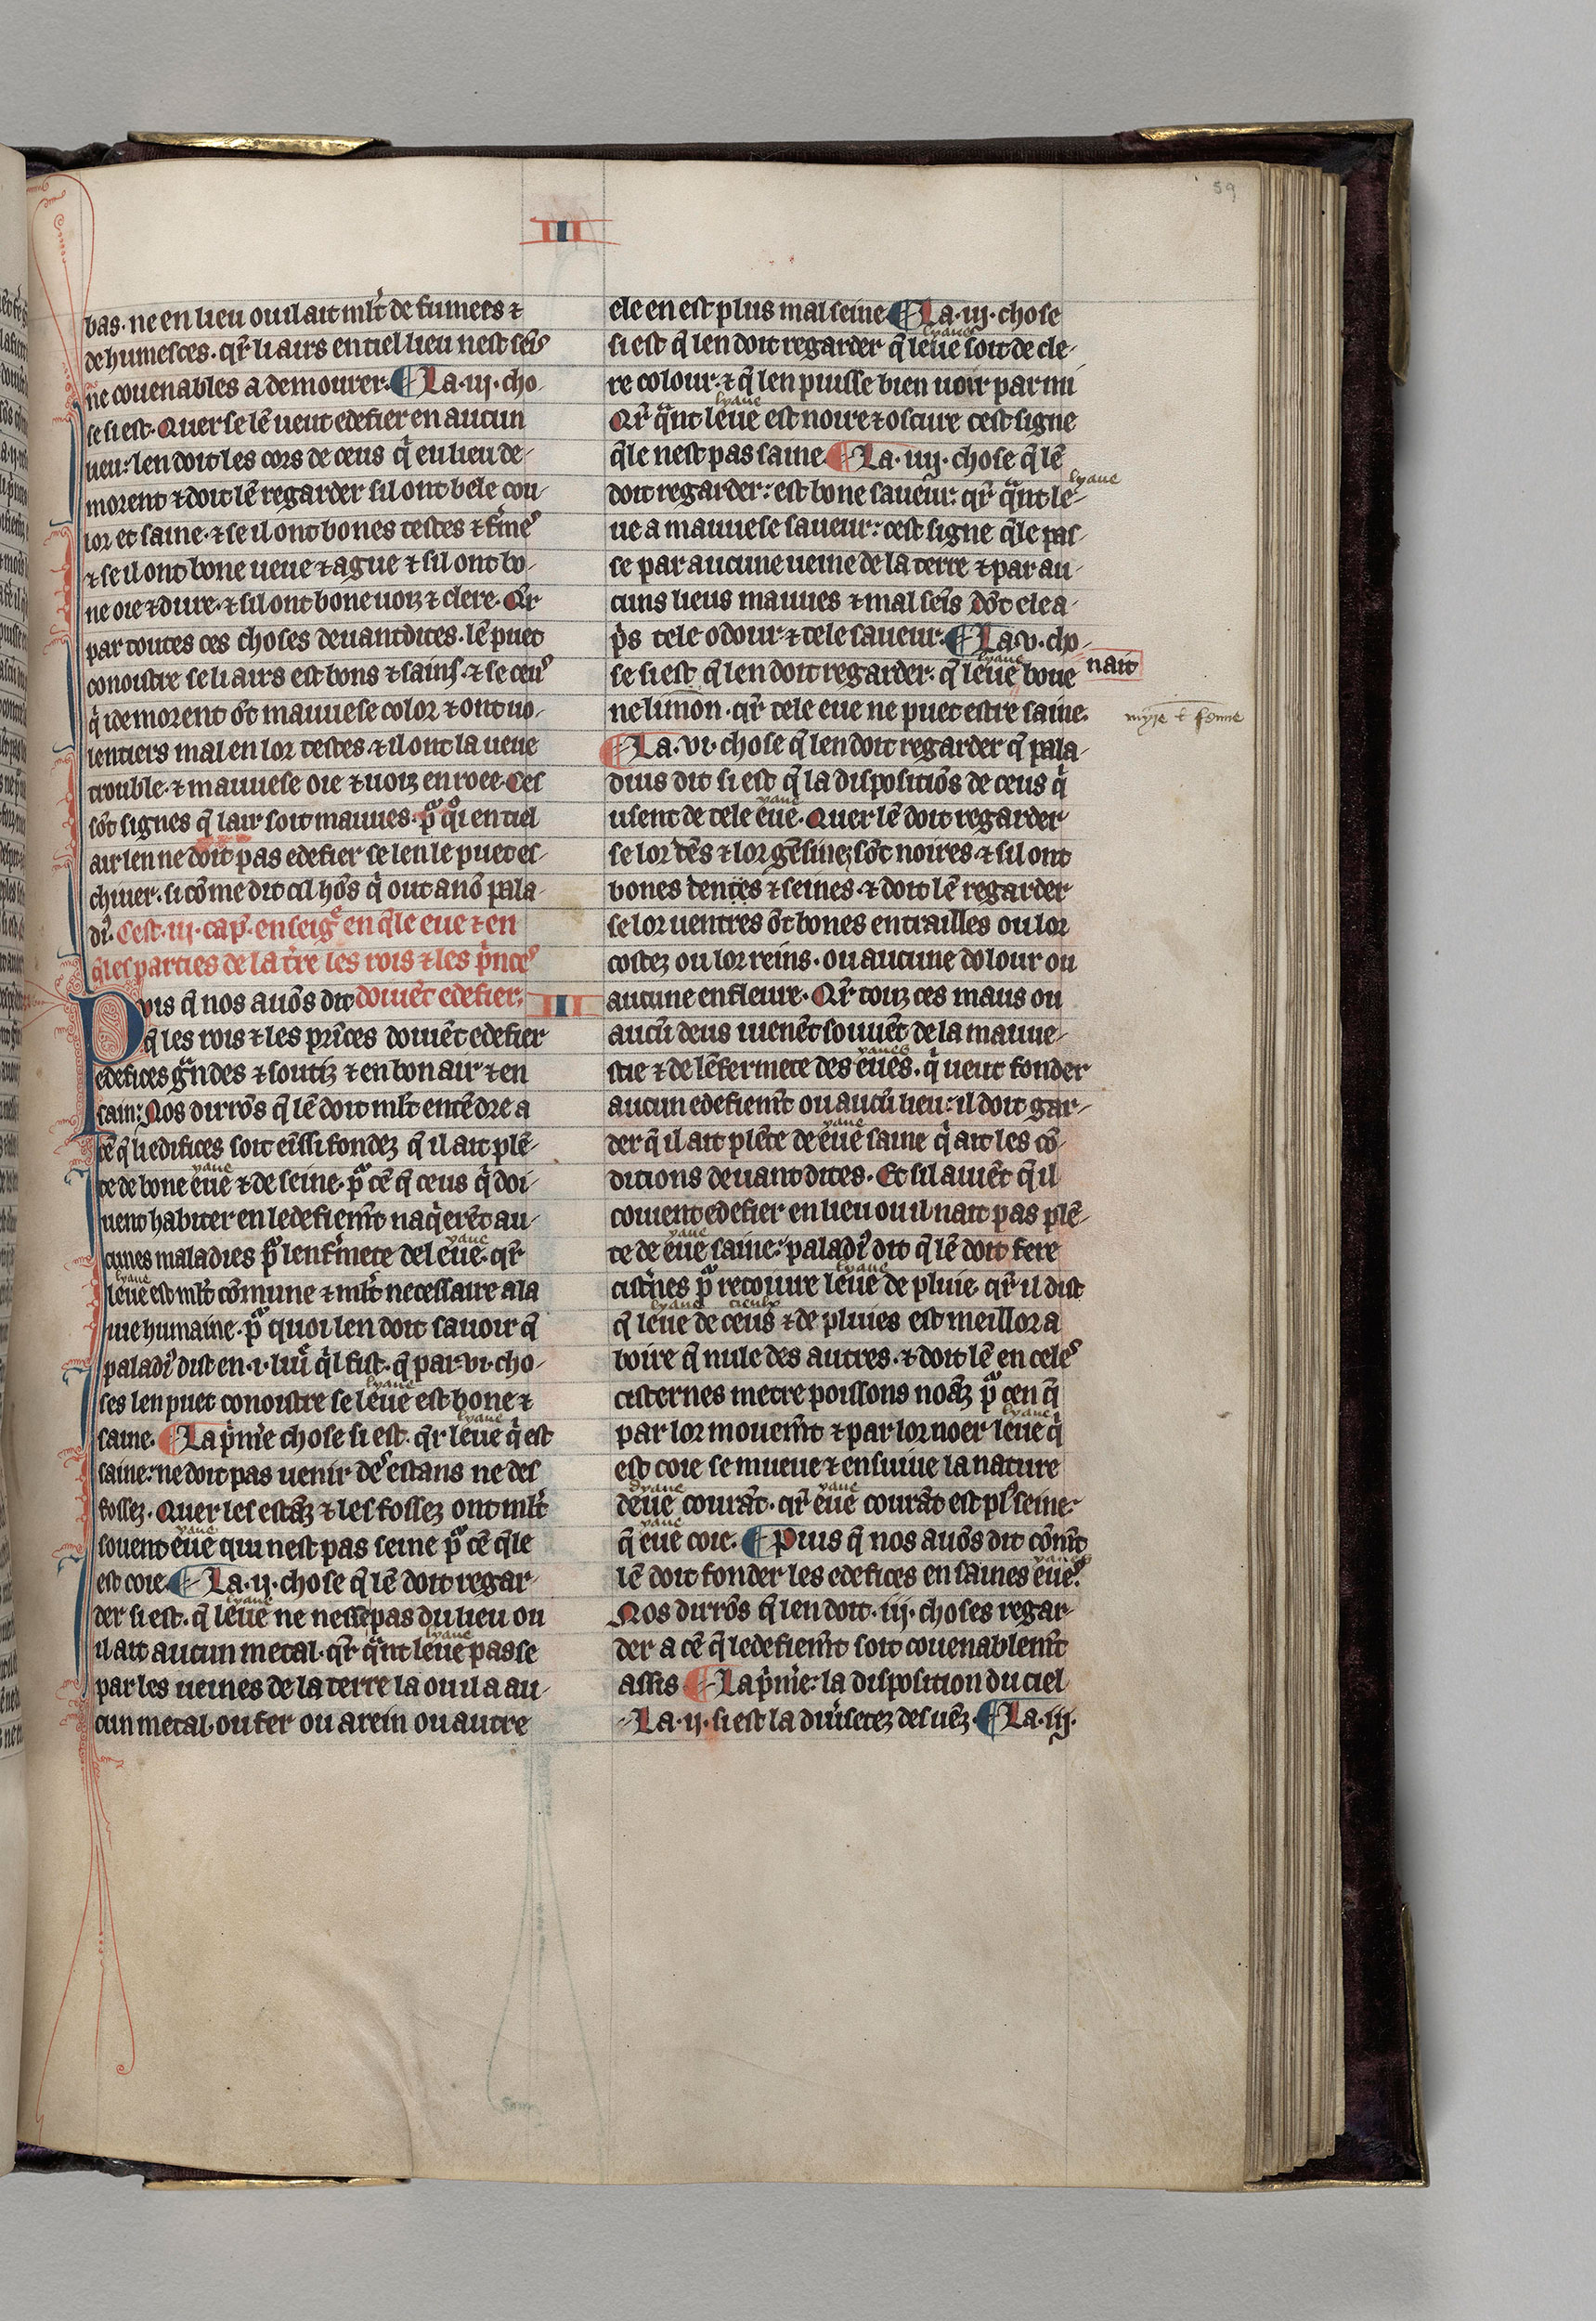 59
III
bas. ne en lieu ou il ait ml̃t de fumees ⁊
de humesces. q̃r li airs en tiel lieu nest seĩs
ne couenables a demourer. ¶ La .iij. cho-
se si est. Quer se lẽ ueut edefier en aucun
lieu: len doit les cors de ceus q̃ eu lieu de-
morent ⁊ doit lẽ regarder sil ont bele cou-
lor et saine. ⁊ se il ont bones testes ⁊ f̃mes
⁊ se il ont bone ueue ⁊ ague ⁊ sil ont bo-
ne oie ⁊ dure. ⁊ sil ont bone uoiz ⁊ clere. Q̃r
par toutes ces choses deuantdites. lẽ puet
conoistre se li airs est bons ⁊ sains. ⁊ se ceus
q̃ i demorent õt mauuese color ⁊ ont uo-
lentiers mal en lor testes. ⁊ il ont la ueue
trouble. ⁊ mauuese oie ⁊ uoiz enroee. Ces
sõt signes q̃ lair soit mauues. p̃ q̃i en tiel
air len ne doit pas edefier se len le puet es-
chiuer. si cõme dit cil hõs q̃ out a nõ pala-
di9. Cest .iij. cap̃. enseig̃ en q̃le eue ⁊ en
q̃les parties de la t̃re les rois ⁊ les p̃nces
Puis q̃ nos auõs dit doiuẽt edefier. III
q̃ les rois ⁊ les prĩces doiuẽt edefier
edefices g̃ndes ⁊ soutiz ⁊ en bon air ⁊ en
sain: Nos dirrõs q̃ lẽ doit ml̃t entẽdre a
cẽ q̃ li edifices soit eissi fondez q̃ il ait plẽ-
yaue
te de bone eue ⁊ de seine. p̃ cẽ q̃ ceus q̃ doi-
uent habiter en ledefiem̃t naq̃erẽt au-
yaue
cunes maladies p̃ lenf̃mete de leue. q̃r
lyaue
leue est ml̃t cõmune ⁊ ml̃t necessaire a la
uie humaine. p̃ quoi len doit sauoir q̃
paladi9 dist en .i. liur̃ q̃l fist. q̃ par .vi. cho-
lyaue
ses len puet conoistre se leue est bone ⁊
lyaue
saine. ¶ La p̃mĩe chose si est. q̃r leue q̃ est
saine: ne doit pas uenir des estans ne des
fossez. Quer les estãz ⁊ les fossez ont ml̃t
yaue
souent eue qui nest pas seine p̃ cẽ q̃le
est coie. ¶ La .ij. chose q̃ lẽ doit regar-
lyaue
der si est. q̃ leue ne nesse pas du lieu ou
lyaue
il ait aucun metal. q̃r q̃nt leue passe
par les ueines de la terre la ou il a au-
cun metal. ou fer ou arein ou autre
ele en est plus mal seine ¶ La .iij. chose
lyaue
si est q̃ len doit regarder q̃ leue soit de cle-
re colour. ⁊ q̃ len puisse bien uoir par mi
lyaue
Q̃r q̃nt leue est noire ⁊ oscure cest signe
q̃le nest pas saine. ¶ La .iiij. chose q̃ lẽ
lyaue
doit regarder: est bone saueur. q̃r q̃nt le-
ue a mauuese saueur: cest signe q̃le pas-
se par aucune ueine de la terre ⁊ par au-
cuns lieus mauues ⁊ mal seĩs dõt ele a-
p̃s tele odour ⁊ tele saueur. ¶ La .v. cho-
lyaue
se si est q̃ len doit regarder. q̃ leue boue nait
ne limon. q̃r tele eue ne puet estre saine.
¶ La .vi. chose q̃ len doit regarder q̃ pala-
dius dit si est q̃ la dispositiõs de ceus q̃
yaue
usent de tele eue. Quer lẽ doit regarder
se lor dẽs ⁊ lor gẽsiuez sõt noires. ⁊ sil ont
bones dentes ⁊ seines. ⁊ doit lẽ regarder
se lor uentres õt bones entrailles ou lor
costez ou lor reins. ou aucune dolour ou
aucune enfleure. Q̃r touz ces maus ou
aucũ deus uienẽt souuẽt de la mauue-
yaues
stie ⁊ de lẽfermete des eues. q̃ ueut fonder
aucun edefiem̃t ou aucũ lieu: il doit gar-
yaue
der q̃ il ait plẽte de eue saine q̃ ait les cõ-
ditions deuant dites. Et sil auiẽt q̃ il
couent edefier en lieu ou il nait pas plẽ-
yaue
te de eue saine: paladi9 dit q̃ lẽ doit fere
lyaue
cist̃nes p̃ recoiure leue de pluie. q̃r il dist
lyaue cieulx
q̃ leue de ceus ⁊ de pluies est meillor a
boire q̃ nule des autres. ⁊ doit lẽ en celes
cisternes metre poissons noãz p̃ cen q̃
lyaue
par lor mouem̃t ⁊ par lor noer leue q̃
est coie se mueue ⁊ ensuiue la nature
dyaue yaue
deue courãt. q̃r eue courãt est pl9 seine:
yaue
q̃ eue coie. ¶ Puis q̃ nos auõs dit cõm̃t
yaues
lẽ doit fonder les edefices en saines eues.
Nos dirrõs q̃ len doit .iij. choses regar-
der a cẽ q̃ ledefiem̃t soit couenablem̃t
assis ¶ La p̃mĩe: la disposition du ciel
La .ij. si est la diu̾setez des uẽz. ¶ La .iij.